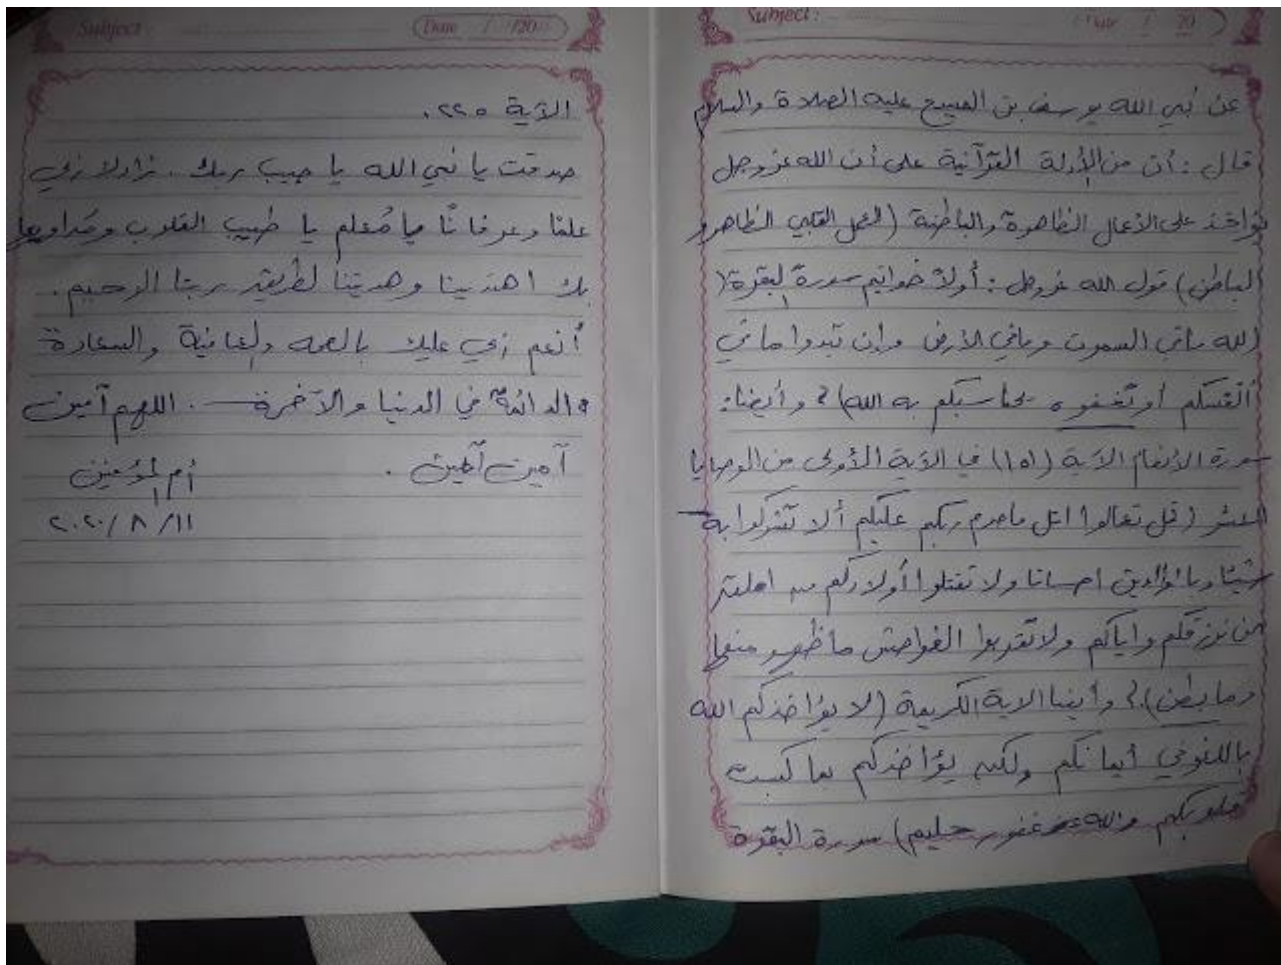 Subject:
Date / 20
عن نبي الله يوسف بن المسيح عليه الصلاة والسلام
قال : أن من الأدلة القرآنية على أن الله عز وجل
يؤاخذ على الأعمال الظاهرة والباطنة (العمل القلبي الظاهر و
الباطن) قول الله عز وجل : أولاً خواتيم سورة البقرة (
لله مافي السموت ومافي الأرض وإن تبدوا ما في
أنفسكم أو تخفوه يحاسبكم به الله) ، وأيضا :
سورة الأنعام الآية (١٥١) في الآية الأولى من الوصايا
العشر (قل تعالوا اتل ماحرم ربكم عليكم ألا تشركوا به
شيئا وبالوالدين احسانا ولا تقتلوا أولادكم من املاق
نحن نرزقكم واياكم ولا تقربوا الفواحش ما ظهر منها
وما بطن) ، وأيضا الآية الكريمة (لا يؤاخذكم الله
باللغو في أيمانكم ولكن يؤاخذكم بما كسبت
قلوبكم والله غفور حليم) سورة البقرة
Subject:
Date / /20
الآية ٢٢٥.
صدقت يا نبي الله يا حبيب ربك . زادك ربي
علمًا وعرفانًا يا مُعلم يا طبيب القلوب ومُداويها
بك اهتدينا وهديتنا لطريق ربنا الرحيم.
أنعم ربي عليك بالصحة والعافية والسعادة
الدائمة في الدنيا والآخرة . اللهم آمين
آمين آمين .
أم المؤمنين
١١/ ٨ /٢٠٢٠